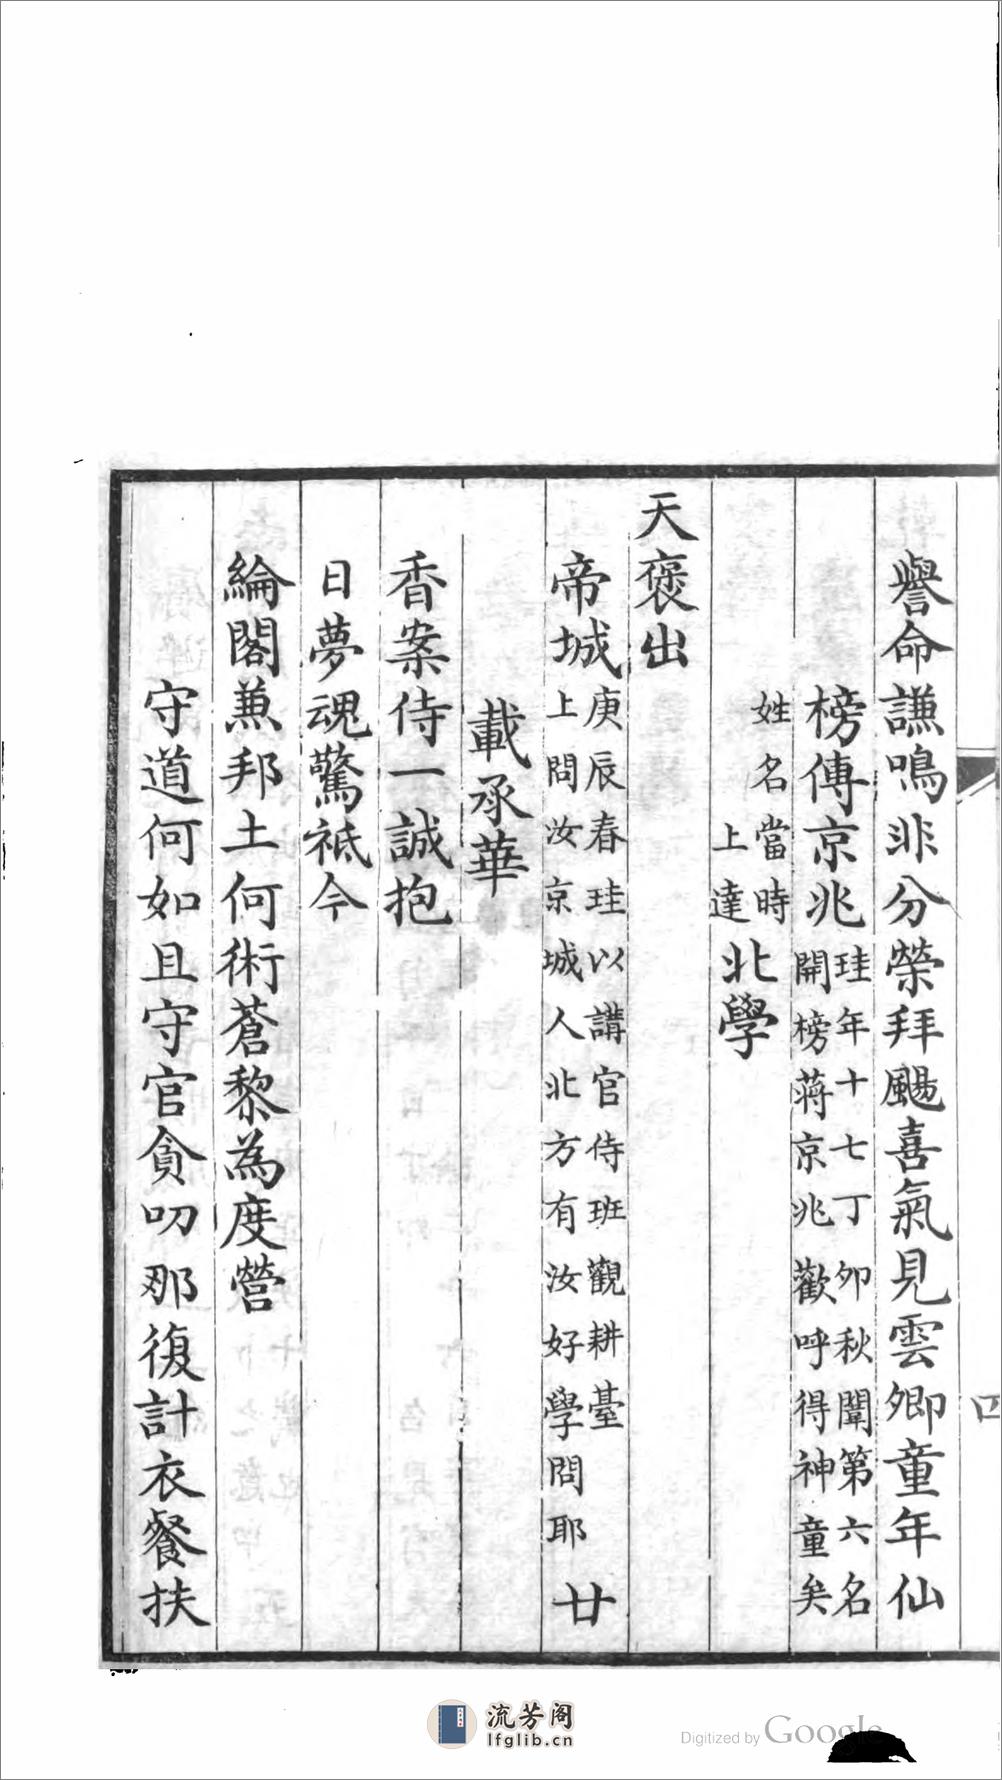 譽命謙鳴非分榮拜颺喜氣見雲卿童年仙
榜傳京兆
珪年十七丁卯秋闈第六名
開榜蔣京兆歡呼得神童矣
姓名當時
上達
北學
天褒出
帝城
庚辰春珪以講官侍班觀耕臺
上問汝京城人北方有汝好學問耶
廿
載承華
香案侍一誠抱
日夢魂驚祗今
綸閣兼邦土何術蒼黎為度營
守道何如且守官貪叨那復計衣餐扶
流芳阁
lfglib.cn
Digitized by Google